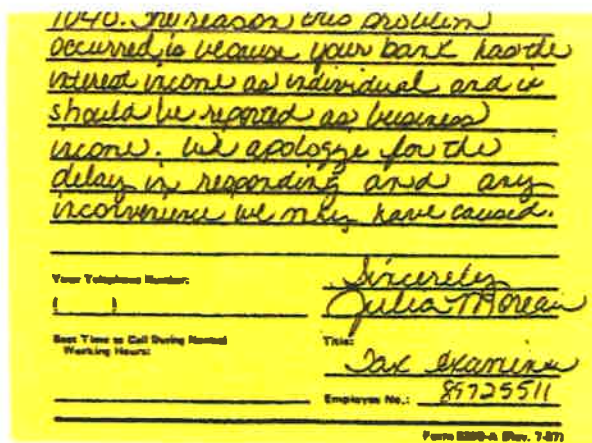 1040. The reason this problem
occurred is because your bank has the
interest income as individual and it
should be reported as business
income. We apologize for the
delay in responding and any
inconvenience we may have caused.
Your Telephone Number:
( )
Sincerely
Julia Moreau
Best Time to Call During Normal
Working Hours:
Title:
Tax Examiner
Employee No.: 89725511
(Rev. 7-87)